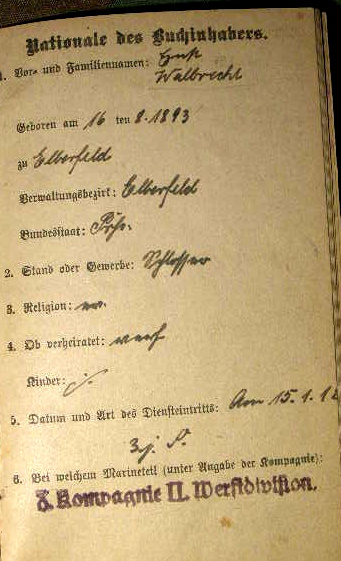 Nationale des Buchinhabers.
1. Vor- und Familiennamen: Ernst
Walbrecht
Geboren am 16 ten 8. 1893
zu Elberfeld
Verwaltungsbezirk: Elberfeld
Bundesstaat:
2. Stand oder Gewerbe: Schlosser
3. Religion: ev.
4. Ob verheiratet:
Kinder:
5. Datum und Art des Diensteintritts: Am 15. 1. 12
3j.
6. Bei welchem Marineteil (unter Angabe der Kompagnie):
Kompagnie II. Werftdivision.